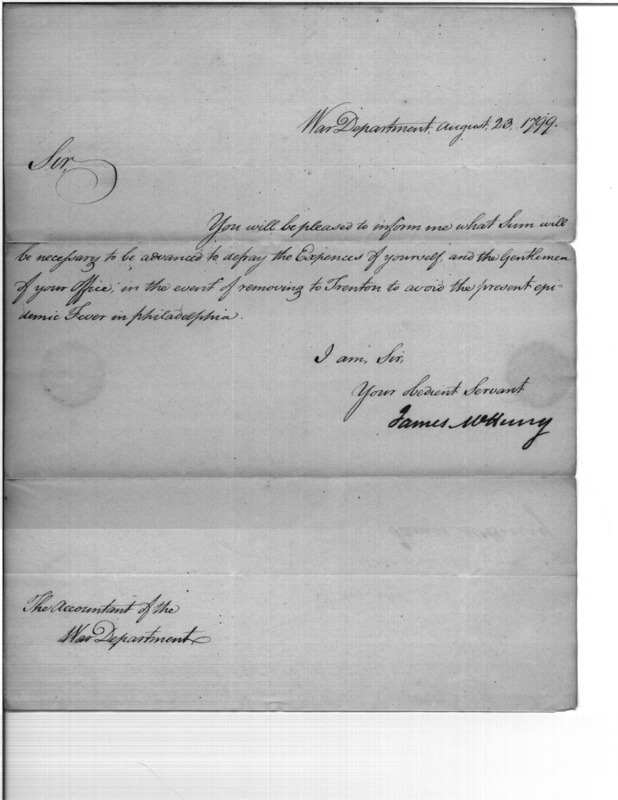 War Department, August, 23, 1799.
Sir,
You will be pleased to inform me what Sum will
be necessary to be advanced to defray the Expences of yourself, and the Gentlemen
of your Office, in the event of removing to Trenton to avoid the present epi-
demic Fever in Philadelphia.
I am, Sir,
Your obedient Servant
James McHenry
The Accountant of the
War Department